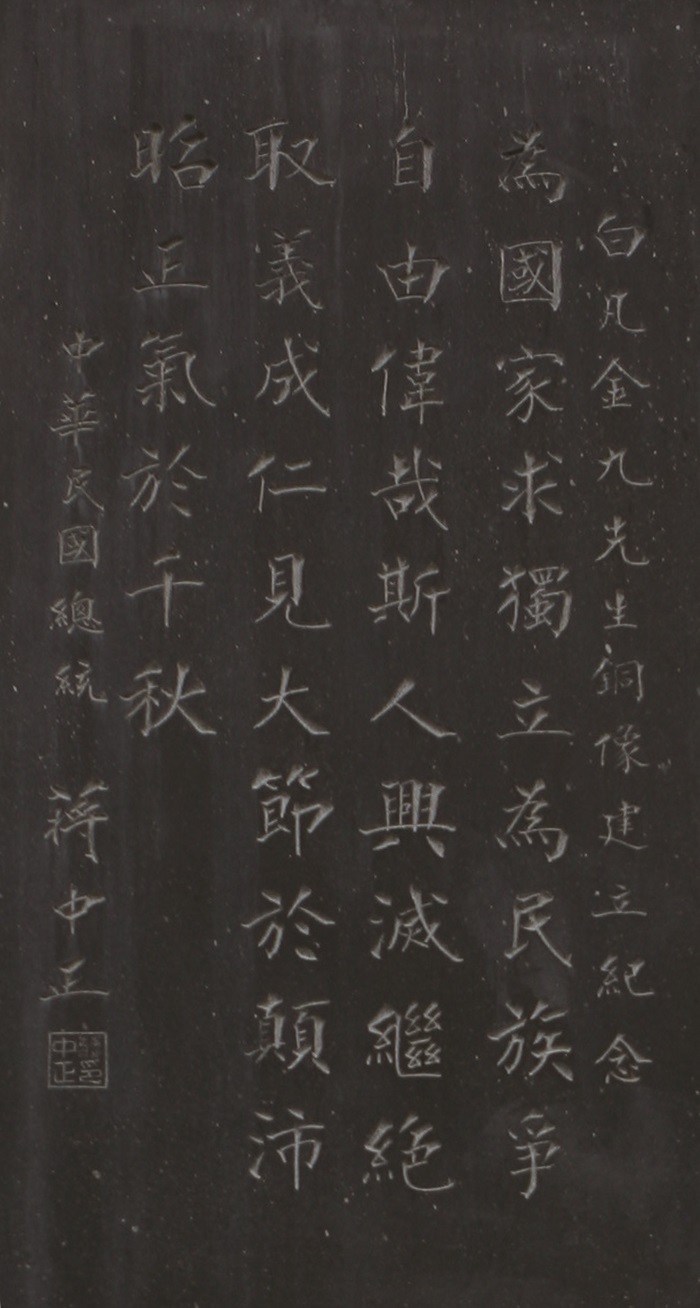 白凡金九先生銅像建立紀念
為國家求獨立為民族爭
自由偉哉斯人興滅繼絕
取義成仁見大節於顛沛
昭正氣於千秋
中華民國總統 蔣中正